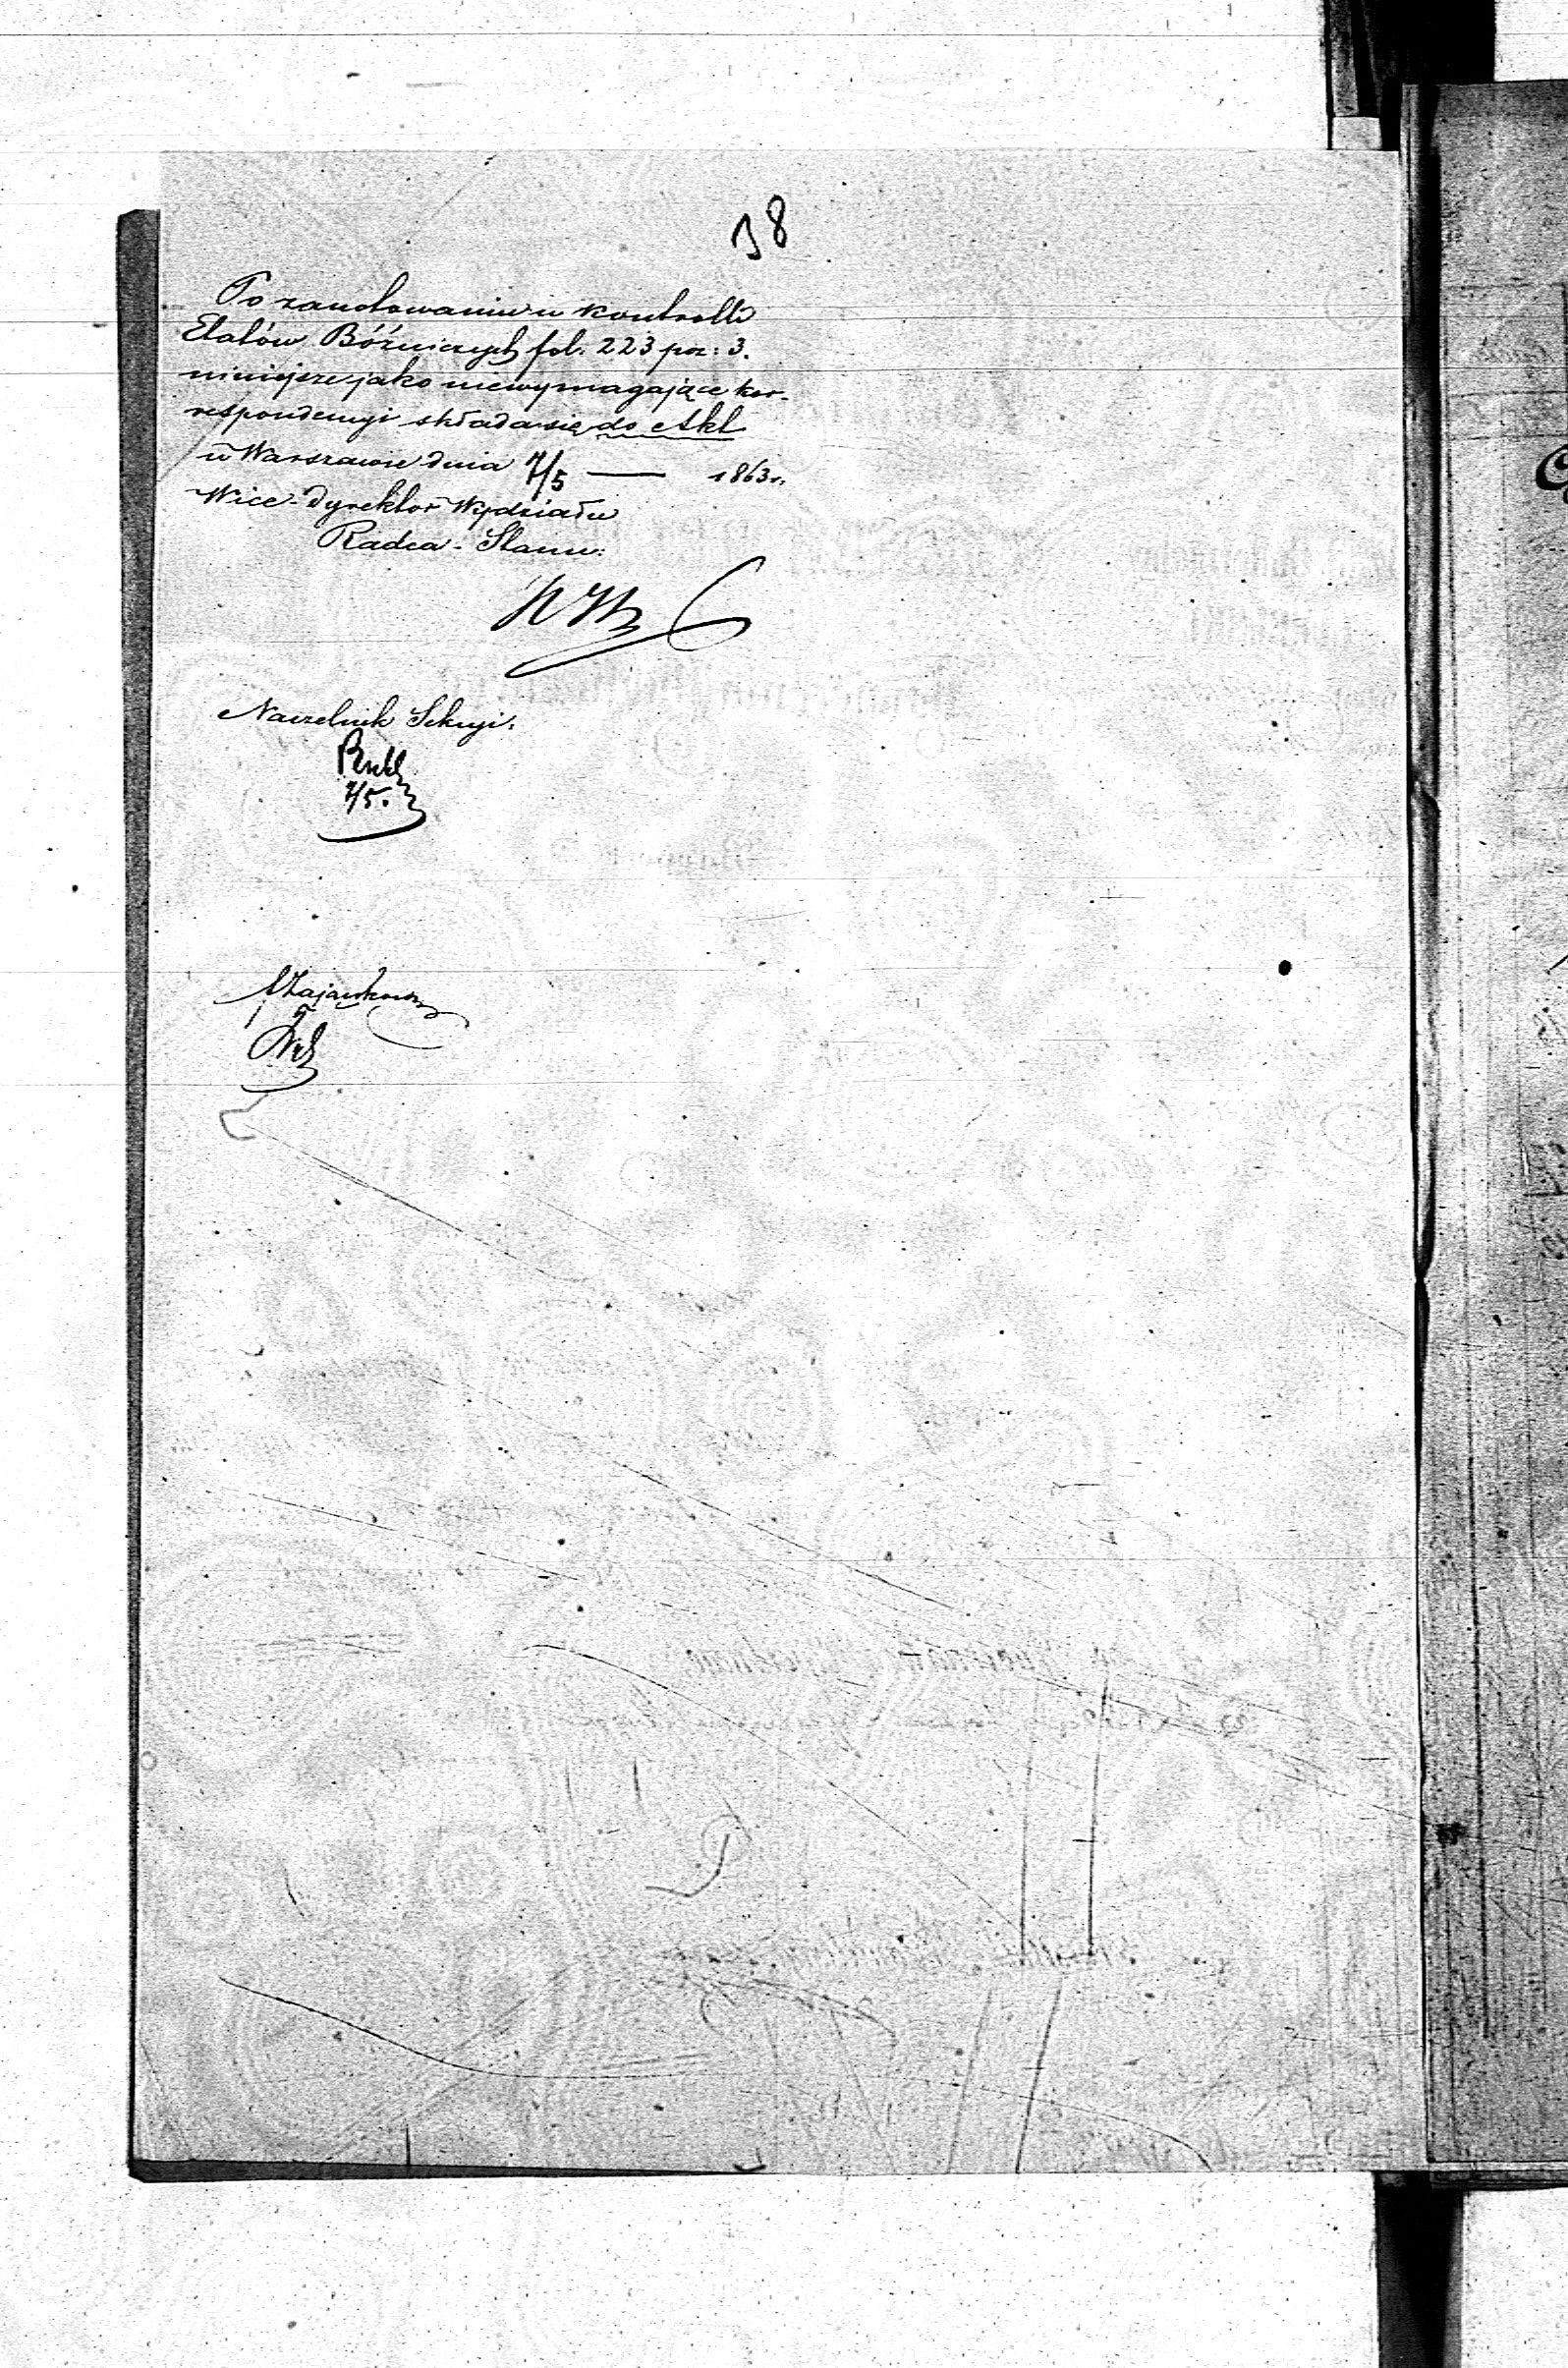 38
Po zanotowaniu w kontrolli
Etatów Bóźniczych fol. 223 poz: 3.
niniejsze jako niewymagające kor-
respondencyi składa się do Akt
w Warszawie dnia 7/5 — 1863 r.
Wice-Dyrektor Wydziału
Radca-Stanu:
Naczelnik Sekcyi:
7/5.